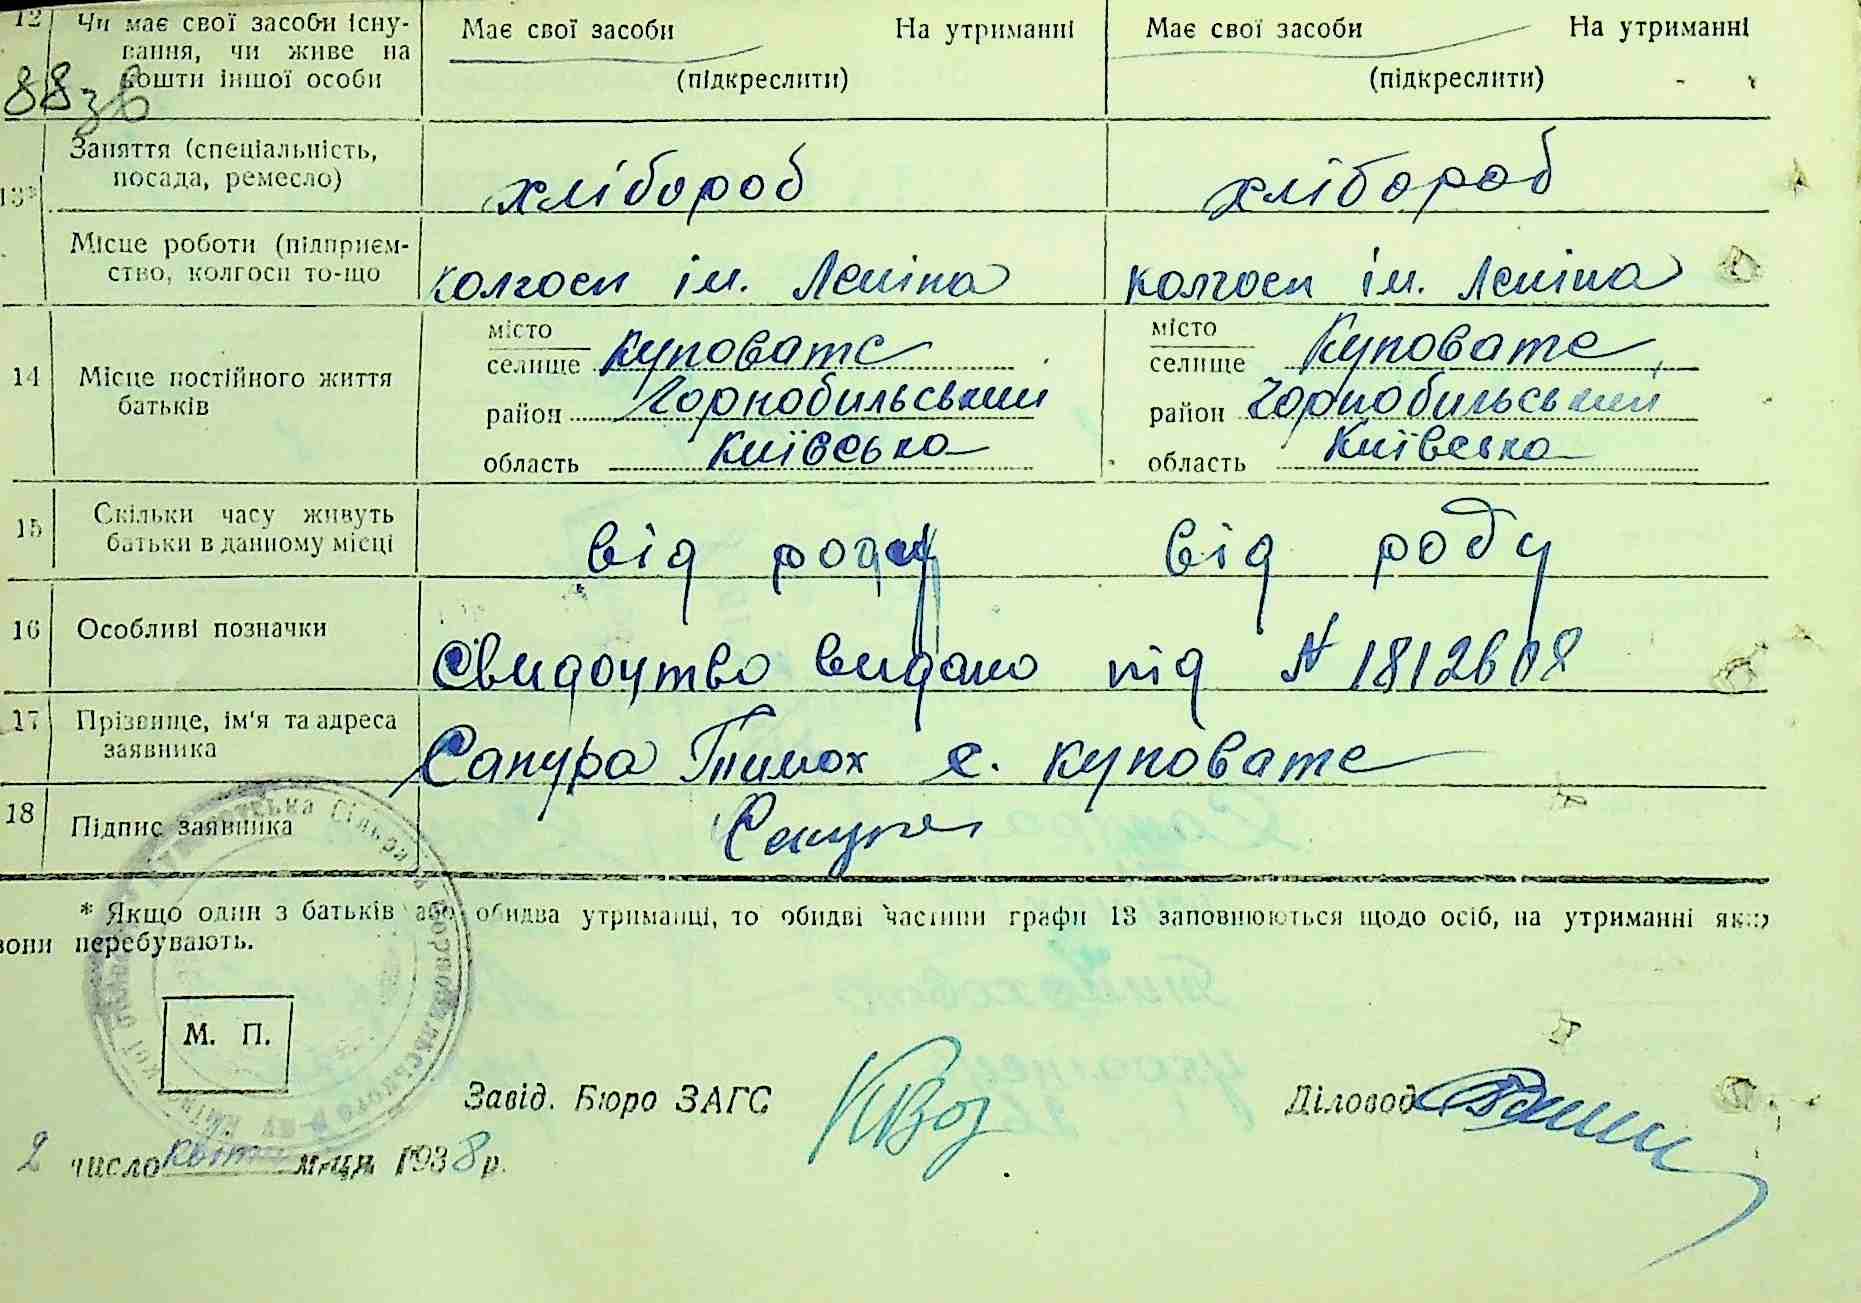 12 Чи має свої засоби існу-
вання, чи живе на
кошти іншої особи
Має свої засоби На утриманні
(підкреслити)
Має свої засоби На утриманні
(підкреслити)
88зв
13* Заняття (спеціальність,
посада, ремесло)
хлібороб хлібороб
Місце роботи (підприєм-
ство, колгосп то-що
колгосп ім. Леніна колгосп ім. Леніна
14 Місце постійного життя
батьків
місто
селище Куповате
район Чорнобильський
область Київська
місто
селище Куповате
район Чорнобильський
область Київська
15 Скільки часу живуть
батьки в данному місці
від роду від роду
16 Особливі позначки
Свидоцтво видано під N 1812608
17 Прізвище, ім'я та адреса
заявника
Сапура Тимох с. Куповате
18 Підпис заявника
Сапура
* Якщо один з батьків або обидва утриманці, то обидві частини графи 13 заповнюються щодо осіб, на утриманні яких
вони перебувають.
М. П.
Завід. Бюро ЗАГС
Діловод
2 число квітн м-ця 1938 р.